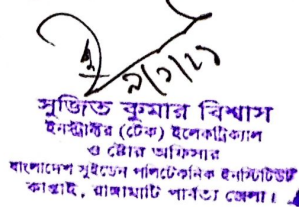 ৯/৩/২১
সুজিত কুমার বিশ্বাস
ইনস্ট্রাক্টর (টেক) ইলেকট্রিক্যাল
ও ষ্টোর অফিসার
বাংলাদেশ সুইডেন পলিটেকনিক ইনস্টিটিউট
কাপ্তাই, রাঙ্গামাটি পার্বত্য জেলা।